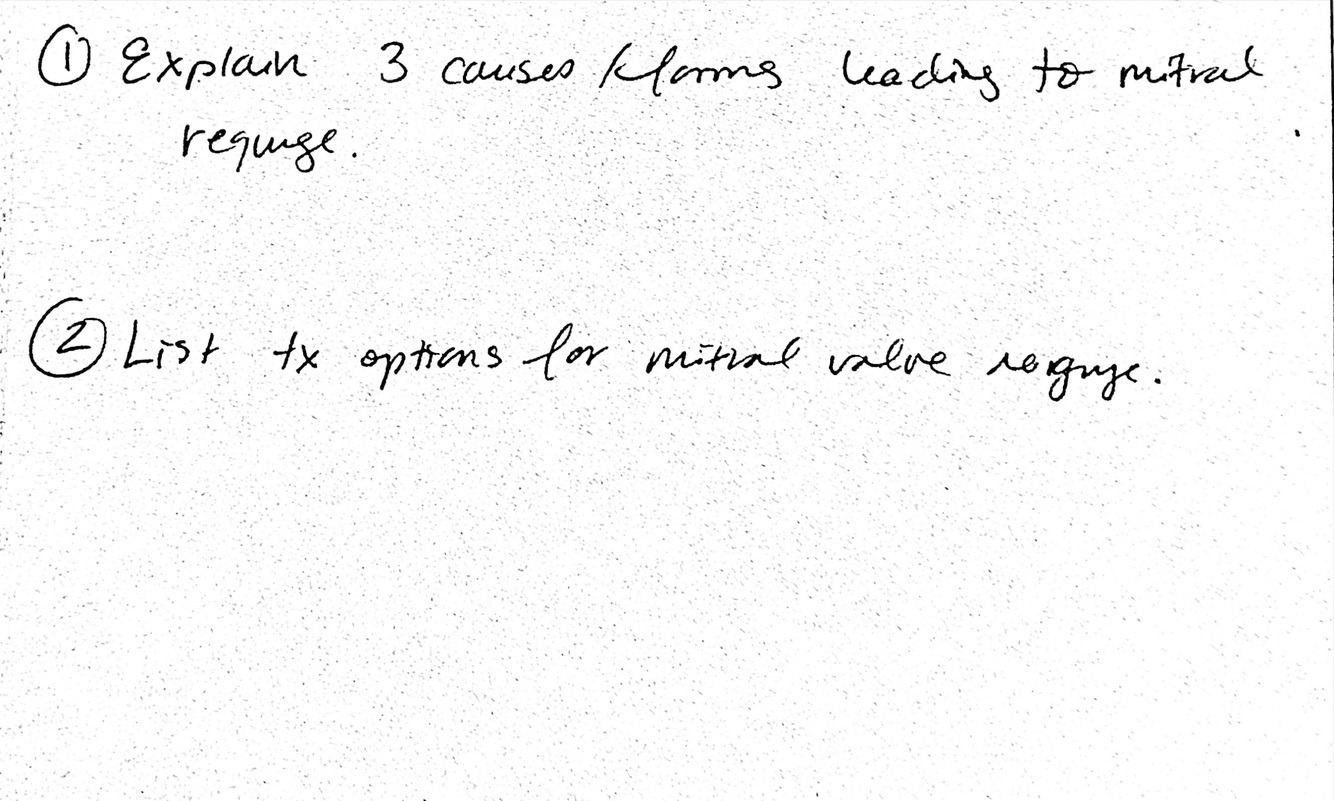 ① Explain 3 causes / forms leading to mitral
regurge.
② List tx options for mitral valve regurge.